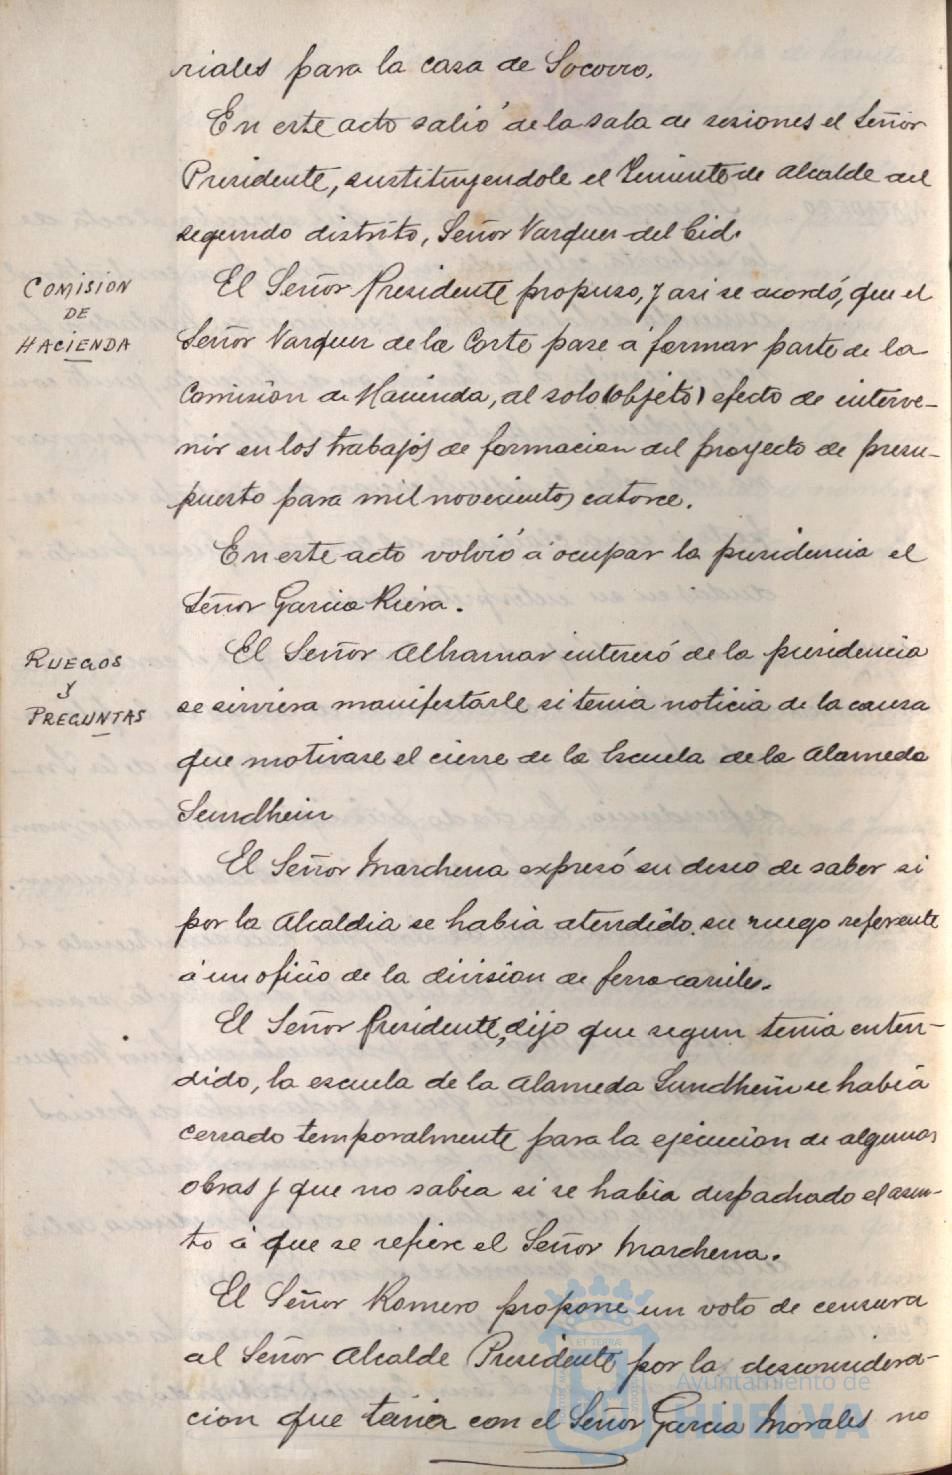 riales para la casa de Socorro.
En este acto salió de la sala de sesiones el Señor
Presidente, sustituyendole el Teniente de Alcalde del
segundo distrito, Señor Vazquez del Cid.
COMISION
DE
HACIENDA
El Señor Presidente propuso, y asi se acordó, que el
Señor Vazquez de la Corte pase á formar parte de la
Comisión de Hacienda, al solo (objeto) efecto de interve-
nir en los trabajos de formacion del proyecto de presu-
puesto para mil novecientos catorce.
En este acto volvió á ocupar la presidencia el
Señor Garcia Riera.
RUEGOS
Y
PREGUNTAS
El Señor Alhamar interesó de la presidencia
se sirviera manifestarle si tenia noticia de la causa
que motivase el cierre de la Escuela de la Alameda
Sundhein
El Señor Marchena expresó su deseo de saber si
por la Alcaldia se habia atendido su ruego referente
á un oficio de la division de ferro-carriles.
El Señor Presidente, dijo que segun tenia enten-
dido, la escuela de la Alameda Sundhein se habia
cerrado temporalmente para la ejecucion de algunas
obras y que no sabia si se habia despachado el asun-
to á que se refiere el Señor Marchena.
El Señor Romero propone un voto de censura
al Señor Alcalde Presidente por la desconsidera-
cion que tenia con el Señor Garcia Morales no
Ayuntamiento de
HUELVA